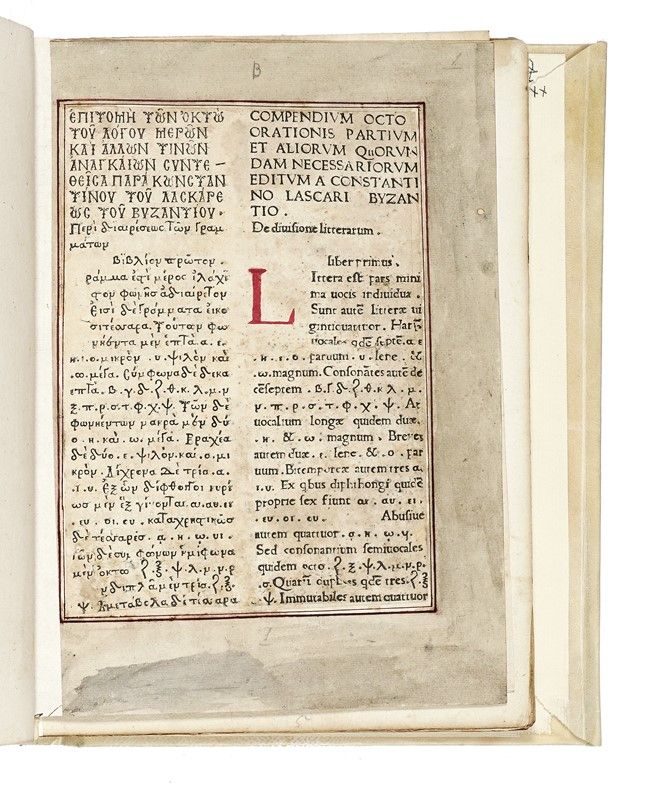 B
ΕΠΙΤΟΜΗ ΤΩΝ ΟΚΤΩ
ΤΟΥ ΛΟΓΟΥ ΜΕΡΩΝ
ΚΑΙ ΑΛΛΩΝ ΤΙΝΩΝ
ΑΝΑΓΚΑΙΩΝ CΥΝΤΕ –
ΘΕΙCΑ ΠΑΡΑ ΚΩΝCΤΑΝ
ΤΙΝΟΥ ΤΟΥ ΛΑCΚΑΡΕ
ΩC ΤΟΥ ΒΥΖΑΝΤΙΟΥ·
Περὶ διαιρέσεως τῶν γραμ
μάτων
Βιβλίον πρῶτον.
ράμμα ἐστὶ μέρος ἐλάχι
στον φωνῆς ἀδιαίρετον
Εἰσὶ δὲ γράμματα εἰκο
σιτέσσαρα. Τούτων φω
νήεντα μὲν ἑπτὰ. α. ε.
η. ι. ο. μικρὸν. υ. ψιλὸν καὶ
.ω. μέγα. Σύμφωνα δὲ δεκα
επτὰ. β. γ. δ. ζ. θ. κ. λ. μ. ν
ξ. π. ρ. σ. τ. φ. χ. ψ. Τῶν δὲ
φωνηέντων μακρὰ μὲν δύ
ο. η. καὶ. ω. μέγα. Βραχέα
δὲ δύο. ε. ψιλὸν. καὶ. ο. μι
κρὸν. Δίχρονα δὲ τρία. α.
.ι. υ. Ἐξ ὧν δίφθογγοι κυρί
ως μὲν ἓξ γίνονται. αι. αυ. ει
. ευ. οι. ου. καταχρηστικῶς
δὲ τέσσαρες. ᾳ. ῃ. ῳ. υι.
τῶν δὲ συμφώνων ἡμίφωνα
μὲν ὀκτὼ ζ. ξ. ψ. λ. μ. ν. ρ
διπλᾶ μὲν τρία. ζ. ξ.
. ψ. Ἀμετάβολα δὲ τέσσαρα
COMPENDIVM OCTO
ORATIONIS PARTIVM
ET ALIORVM QuORVN
DAM NECESSARIORVM
EDITVM A CONSTANTI
NO LASCARI BYZAN
TIO .
De diuisione litterarum .
liber primus .
L
Ittera est pars mini
ma uocis indiuidua .
Sunt autē litteræ ui
gintiquattuor. Harū
uocales qdē septē. α ε
. η. ι. ο. paruum . υ. lene . &
.ω. magnum. Consonātes autē de
cēseptem . β. γ. δ. ζ. θ. κ. λ. μ.
ν. π. ρ. σ. τ. φ. χ. ψ. At
uocalium longæ quidem duæ.
. η. & . ω. magnum . Breues
autem duæ. ε. lene . & . ο. par
uum . Bitemporeæ autem tres α.
.ι. υ. Ex qbus diphthongi quidē
proprie sex fiunt αι. αυ. ει.
. ευ. οι. ου. Abusiue
autem quattuor . ᾳ. ῃ. ῳ.
Sed consonantium semiuocales
quidem octo . ζ. ξ. ψ. λ. μ. ν. ρ.
. σ. Quarū duplices qdē tres. ζ. ξ
. ψ. Immutabiles autem quattuor